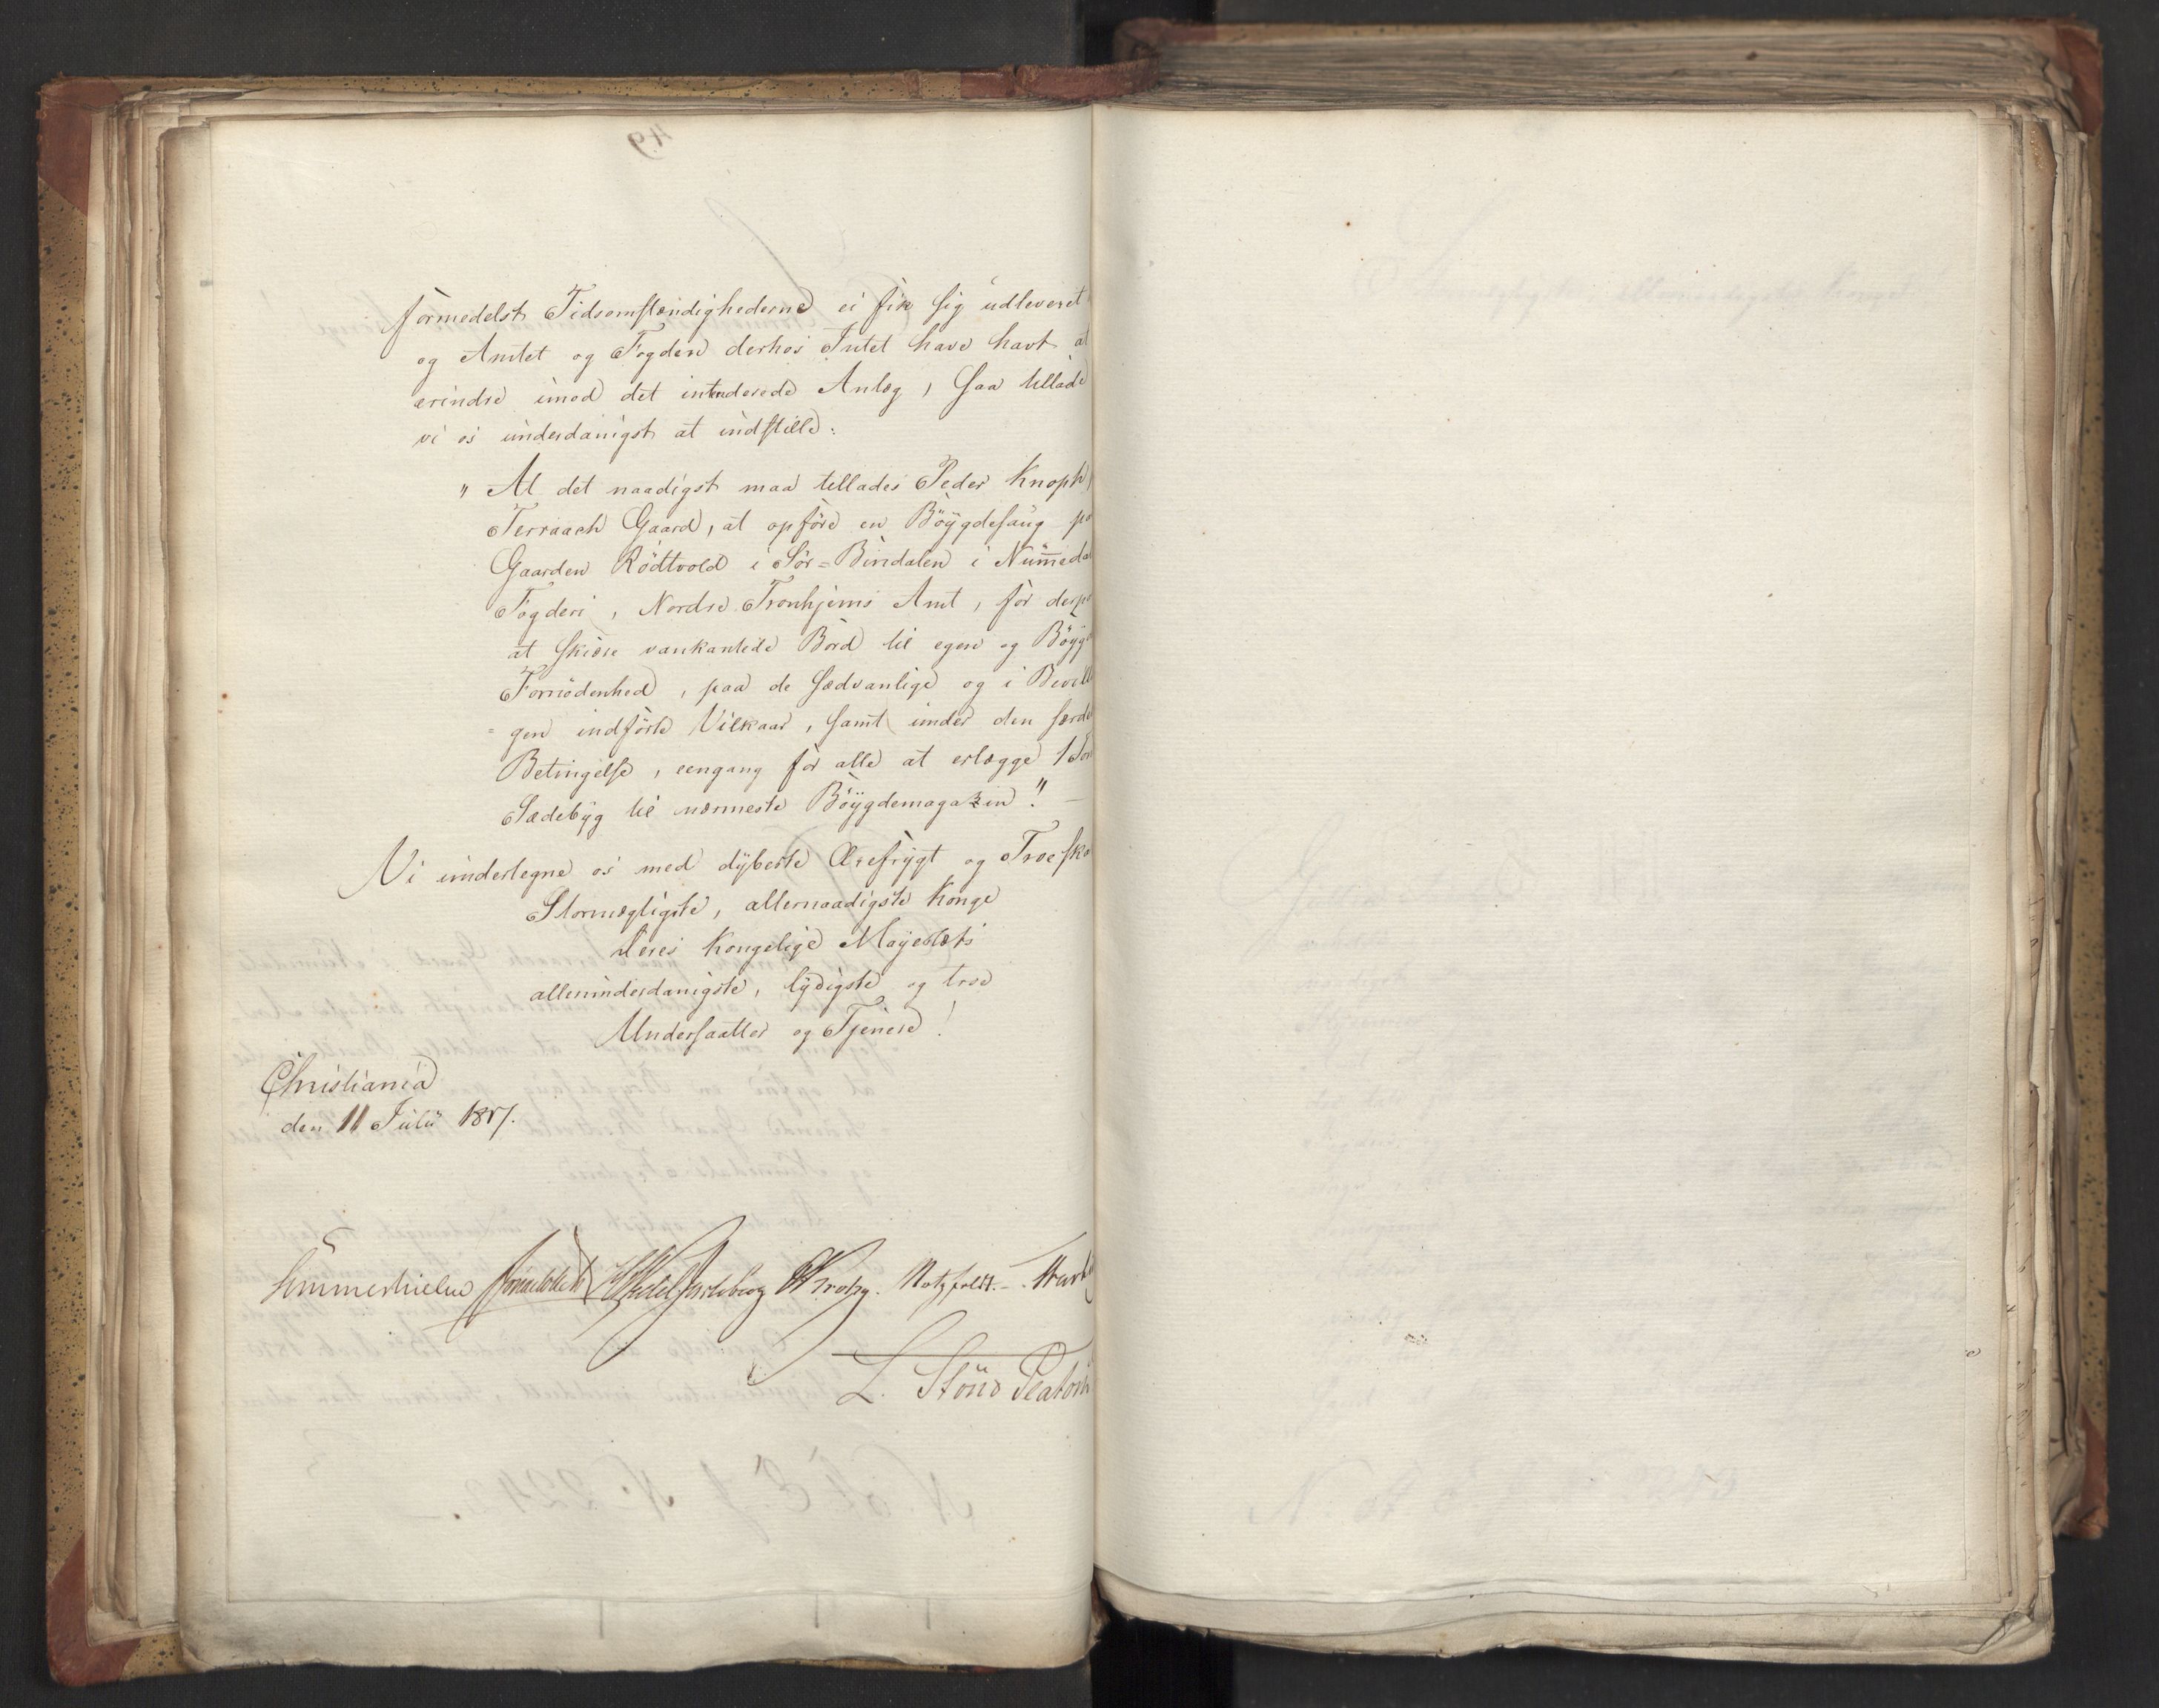 formedelst Tidsomstændighederne ei fik sig udleveret
og Amtet og Fogden derhos Intet have havt at
erindre imod det intenderede Anlæg, saa tillade
vi os underdanigst at indstille:
"At det naadigst maa tillades Peder Knoph,
Terraach Gaard, at opföre en Böÿgdesaug
Gaarden Rödtvold i Sör=Bindalen i Num̄eda
Fogderi, Nordre Tronhjems Amt, for derpa
at skiære vankantede Bord til egen og Böÿg
Fornödenhed, paa de sædvanlige og i Bevill
=gen indförte Vilkaar, samt under den særde
Betingelse, eengang for alle at erlægge 1
Sædebÿg til nærmeste Böÿgdemagazin!" —
Vi undertegne os med dÿbeste Ærefrÿgt og Troeska
Stormægtigste, allernaadigste Konge
Deres Kongelige Mayestæts
allerunderdanigste, lÿdigste og troe
Undersaatter og Tjenere!
Christiania
den 11 Julii 1817.
Sommerhielm HWedelJarlsberg Krohg. Motzfeldt.
L. Stöud Platou